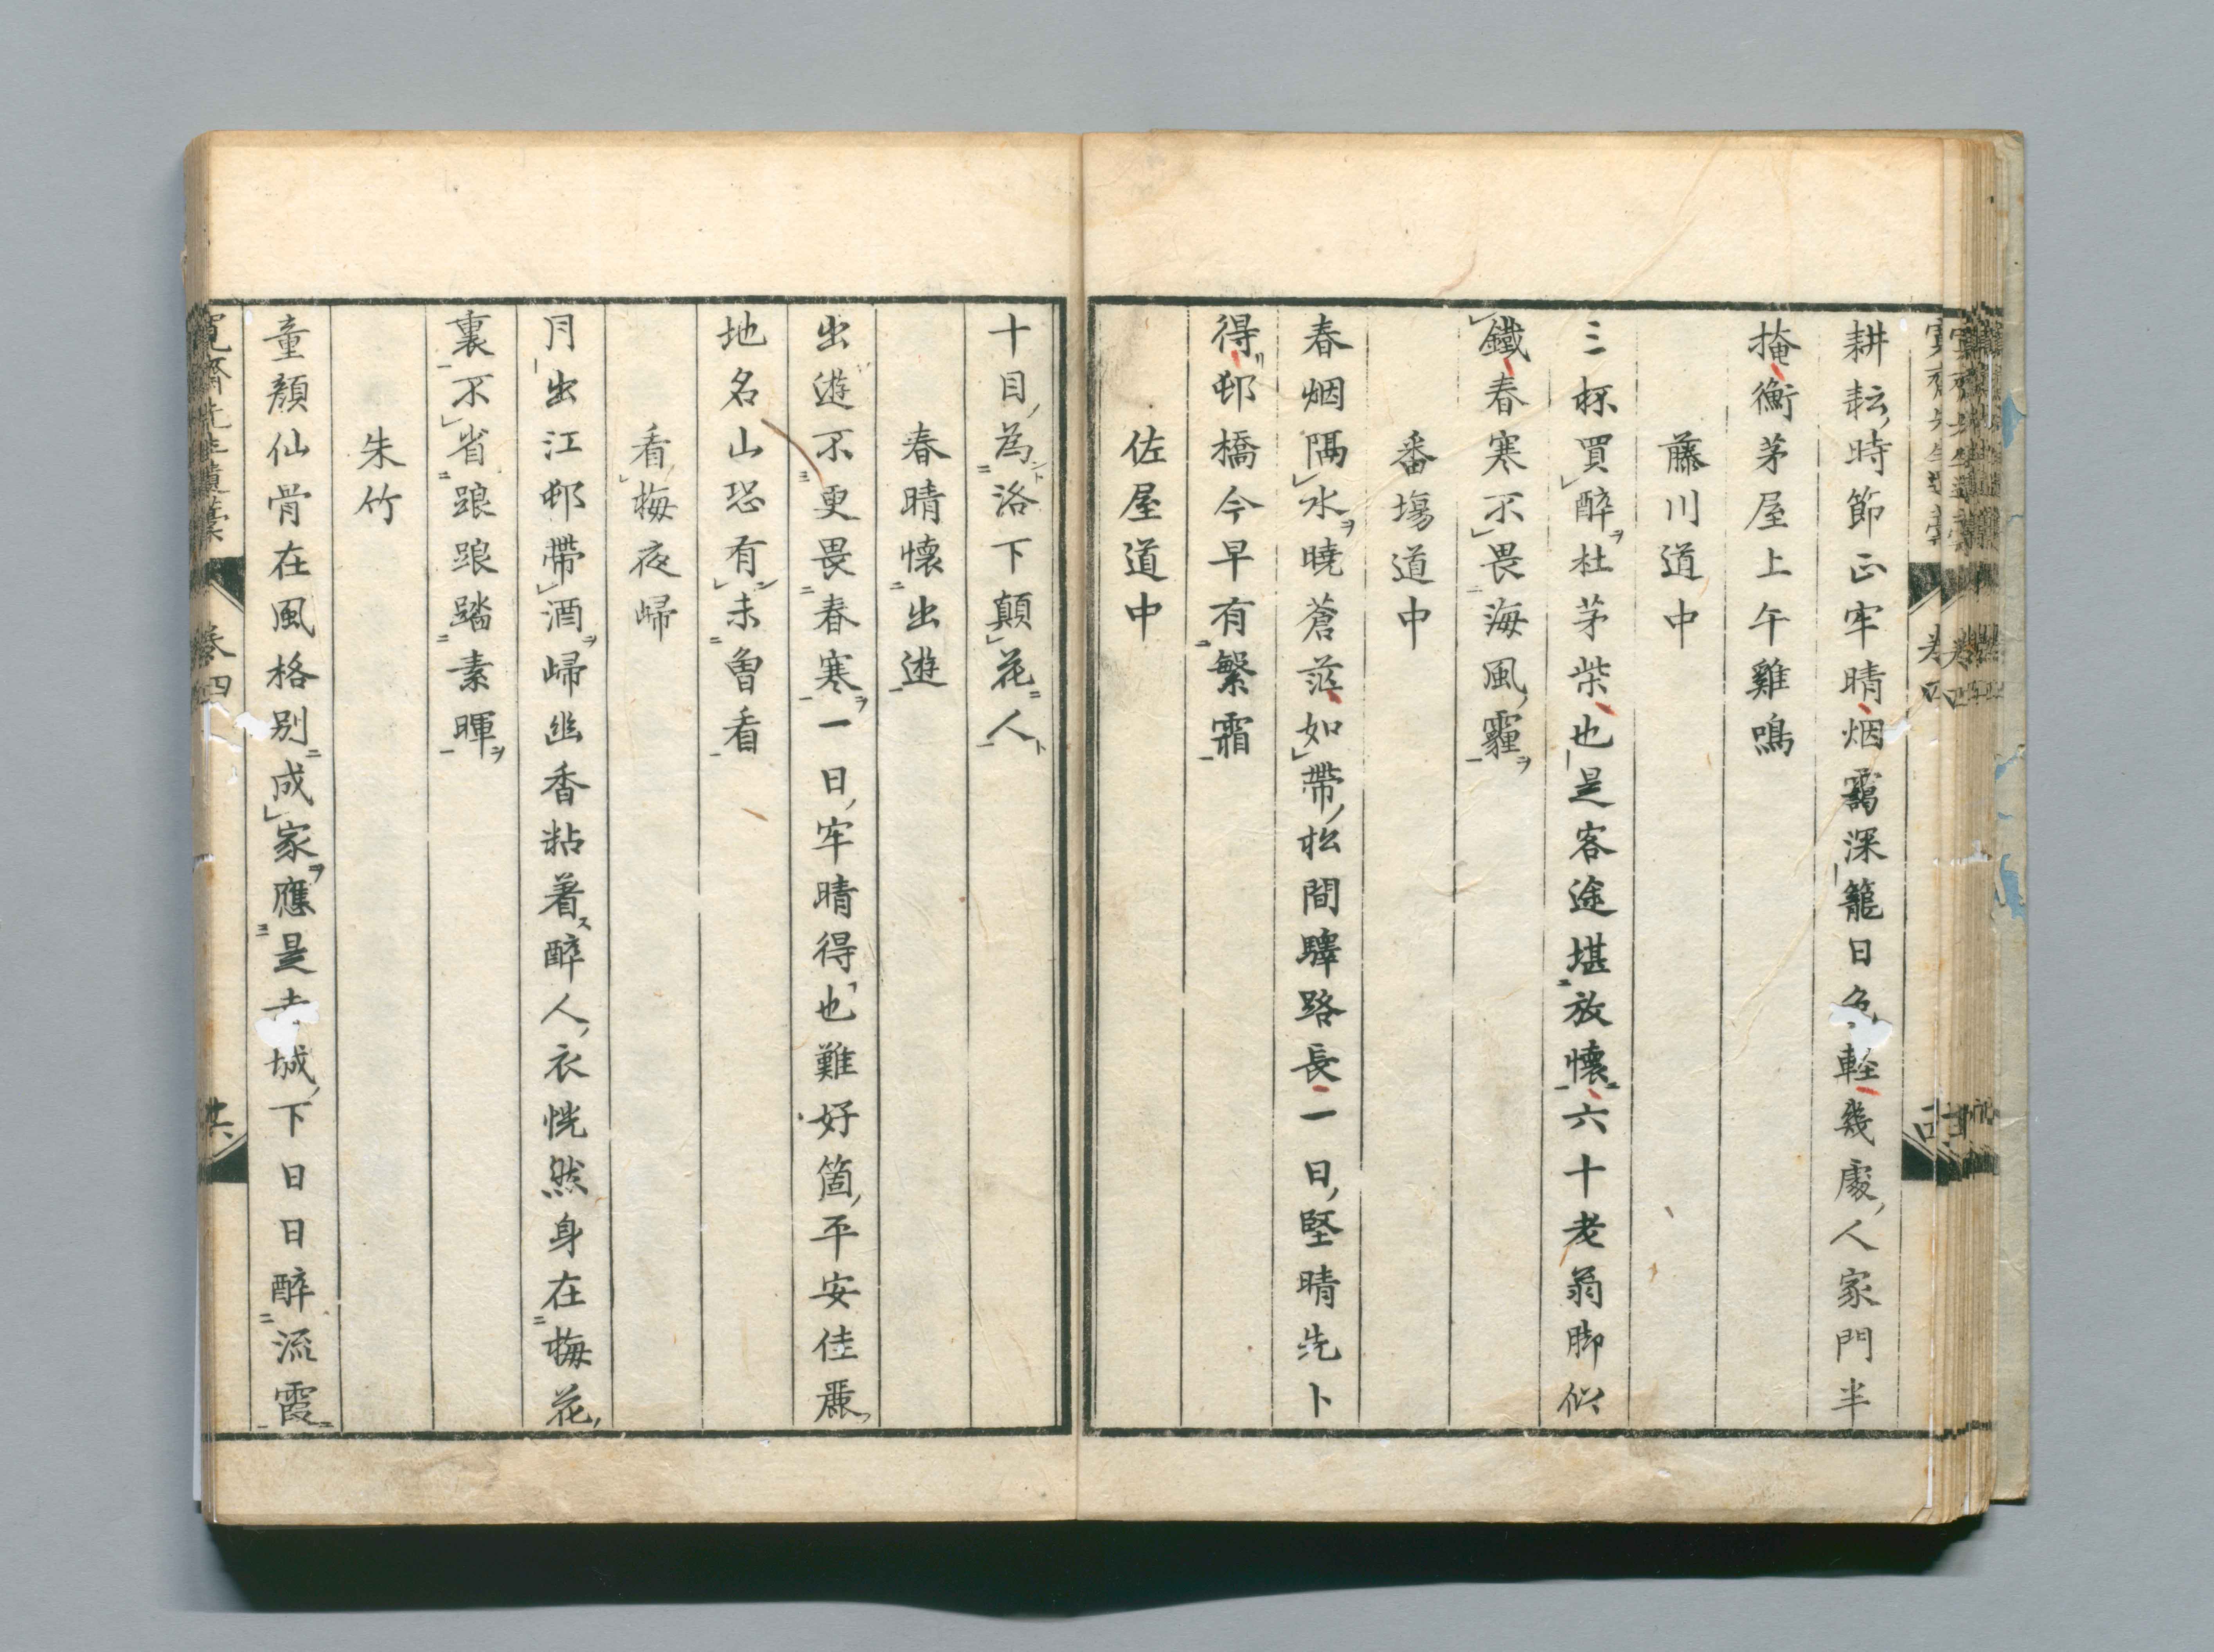 耕耘時節正牢晴烟靄深籠日色輕幾處人家門半
掩衡茅屋上午雞鳴
藤川道中
三杯買醉杜茅柴也是客途堪放懷六十老翁脚似
鐵春寒不畏海風霾
番塲道中
春烟隔水曉蒼茫如帶松間驛路長一日堅晴先卜
得邨橋今早有繁霜
佐屋道中
十日為洛下顛花人
春晴懷出遊
出遊不更畏春寒一日牢晴得也難好箇平安佳麗
地名山恐有未曾看
看梅夜歸
月出江邨帶酒歸幽香粘着醉人衣恍然身在梅花
裏不省踉踉踏素暉
朱竹
童顏仙骨在風格別成家應是城下日日醉流霞
寬齋先生遺稾
卷四
共